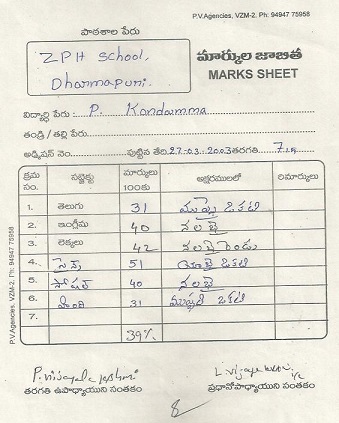 P.V.Agencies, VZM-2. Ph: 94947 75958
పాఠశాల పేరు
ZPH School,
Dharmapuri.
మార్కుల జాబిత
MARKS SHEET
విద్యార్థి పేరు: P. Kondamma
తండ్రి / తల్లి పేరు
అడ్మిషన్ నెం. పుట్టిన తేది:27-03-2003 తరగతి 7
క్రమ సం. సబ్జెక్టు మార్కులు 100కు అక్షరములలో రిమార్కులు
1. తెలుగు 31 ముప్పై ఒకటి
2. ఇంగ్లీషు 40 నలభై
3. లెక్కలు 42 నలభై రెండు
4. సైన్స్ 51 యాభై ఒకటి
5. సోషల్ 40 నలభై
6. హింది 31 ముప్పది ఒకటి
7.
39%
P.V.Agencies, VZM-2. Ph: 94947 75958
తరగతి ఉపాధ్యాయుని సంతకం ప్రధానోపాధ్యాయుని సంతకం